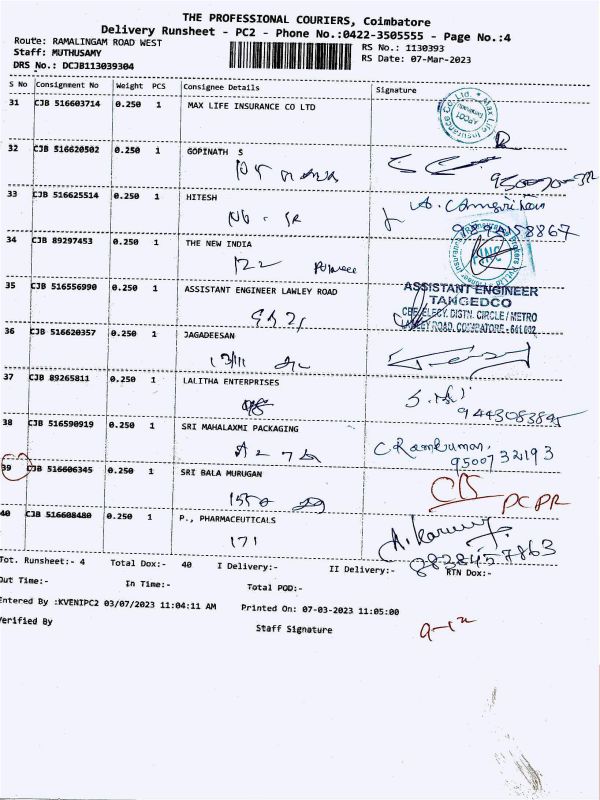 THE PROFESSIONAL COURIERS, Coimbatore
Delivery Runsheet - PC2 - Phone No.:0422-3505555 - Page No.:4
Route: RAMALINGAM ROAD WEST
RS No.: 1130393
Staff: MUTHUSAMY
RS Date: 07-Mar-2023
DRS No.: DCJB113039304
S No Consignment No Weight PCS Consignee Details Signature
31 CJB 516603714 0.250 1 MAX LIFE INSURANCE CO LTD
32 CJB 516620502 0.250 1 GOPINATH S
33 CJB 516625514 0.250 1 HITESH
34 CJB 89297453 0.250 1 THE NEW INDIA
122
35 CJB 516556990 0.250 1 ASSISTANT ENGINEER LAWLEY ROAD
ASSISTANT ENGINEER
TANGEDCO
CBE.ELECY. DISTN. CIRCLE / METRO
LAWLEY ROAD, COIMBATORE - 641 002
36 CJB 516620357 1 0.250 JAGADEESAN
37 CJB 89265811 0.250 1 LALITHA ENTERPRISES
9443083845
38 CJB 516590919 0.250 1 SRI MAHALAXMI PACKAGING
C Ramkumar,
9500732193
39 CJB 516606345 0.250 1 SRI BALA MURUGAN
40 CJB 516608480 0.250 1 P., PHARMACEUTICALS
171
Tot. Runsheet:- 4 Total Dox:- 40 I Delivery:- II Delivery:- RTN Dox:-
Out Time:- In Time:- Total POD:-
Entered By :KVENIPC2 03/07/2023 11:04:11 AM Printed On: 07-03-2023 11:05:00
Verified By Staff Signature